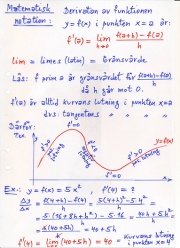 Matematisk notation: Derivatan av funktionen
y=f(x) i punkten x=a är:
f'(a) = lim h→0 f(a+h)-f(a) / h
lim = limes (latin) = Gränsvärde
Läs: f prim a är gränsvärdet för f(a+h)-f(a) / h
då h går mot 0.
f'(a) är alltid kurvans lutning i punkten x=a
dvs tangentens
Därför:
T.ex.
f'=0
f'>0
f'<0
f'=0
y=f(x)
x
Ex.: y = f(x) = 5x², f'(4) = ?
Δy/Δx = f(4+h)-f(4) / h = 5(4+h)²-5·4² / h
40h+5h² / h
h(40+5h) / h = 40+5h
f'(4) = lim h→0 (40+5h) = 40
Kurvans lutning
i punkten x=4